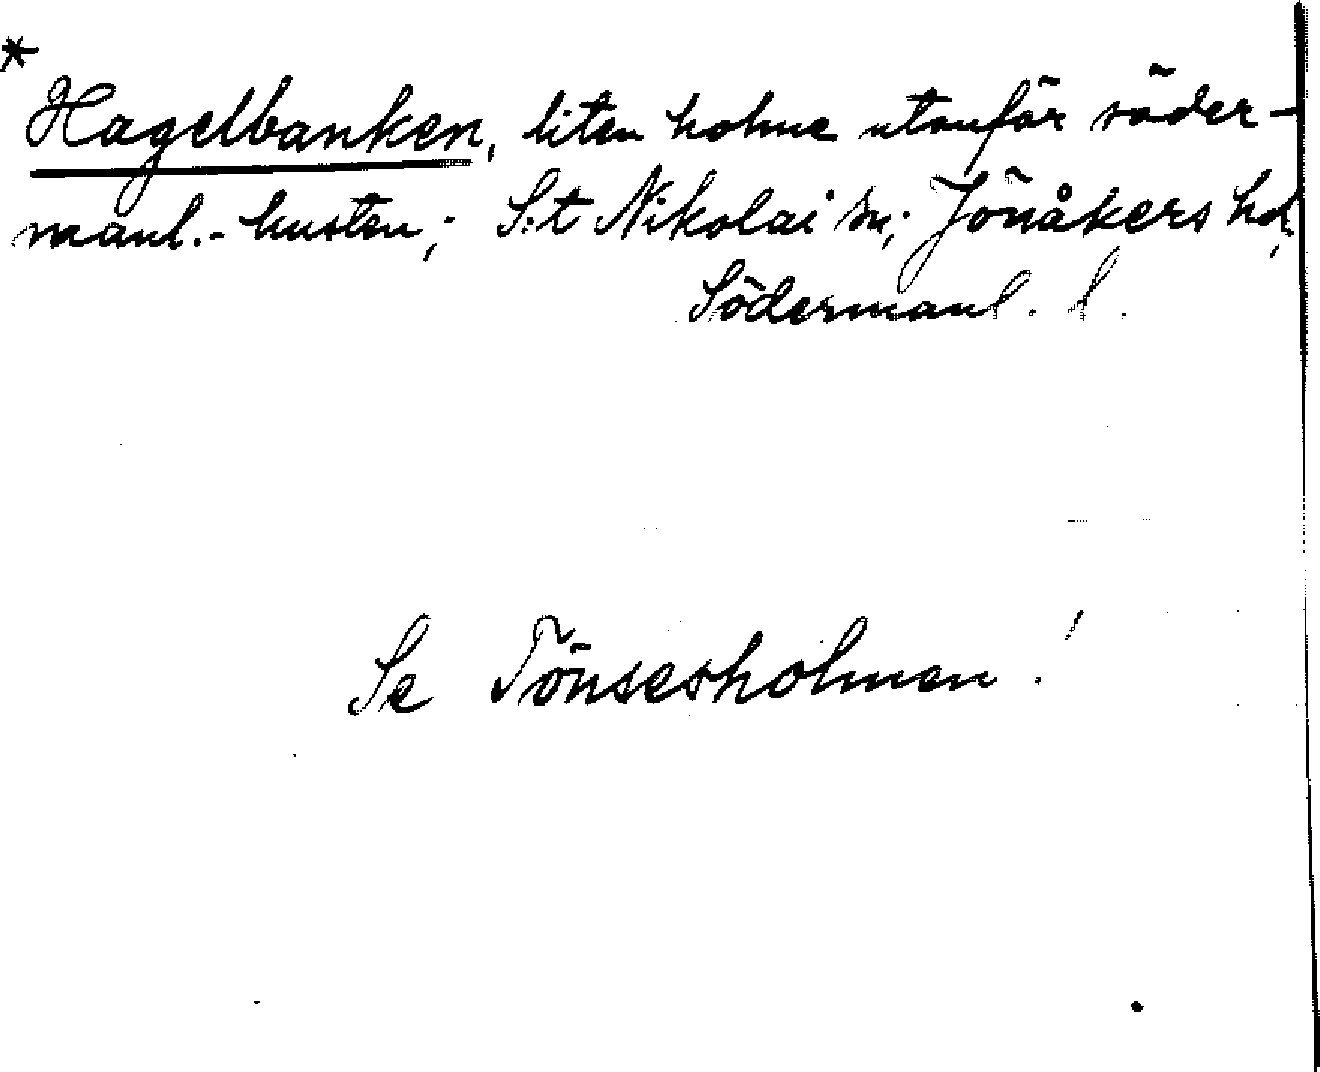 *
Hagelbanken, liten holme utanför söder-
manl.-kusten; S:t Nikolai sn; Jönåkers hd,
Södermanl. l.
Se Tönsesholmen!